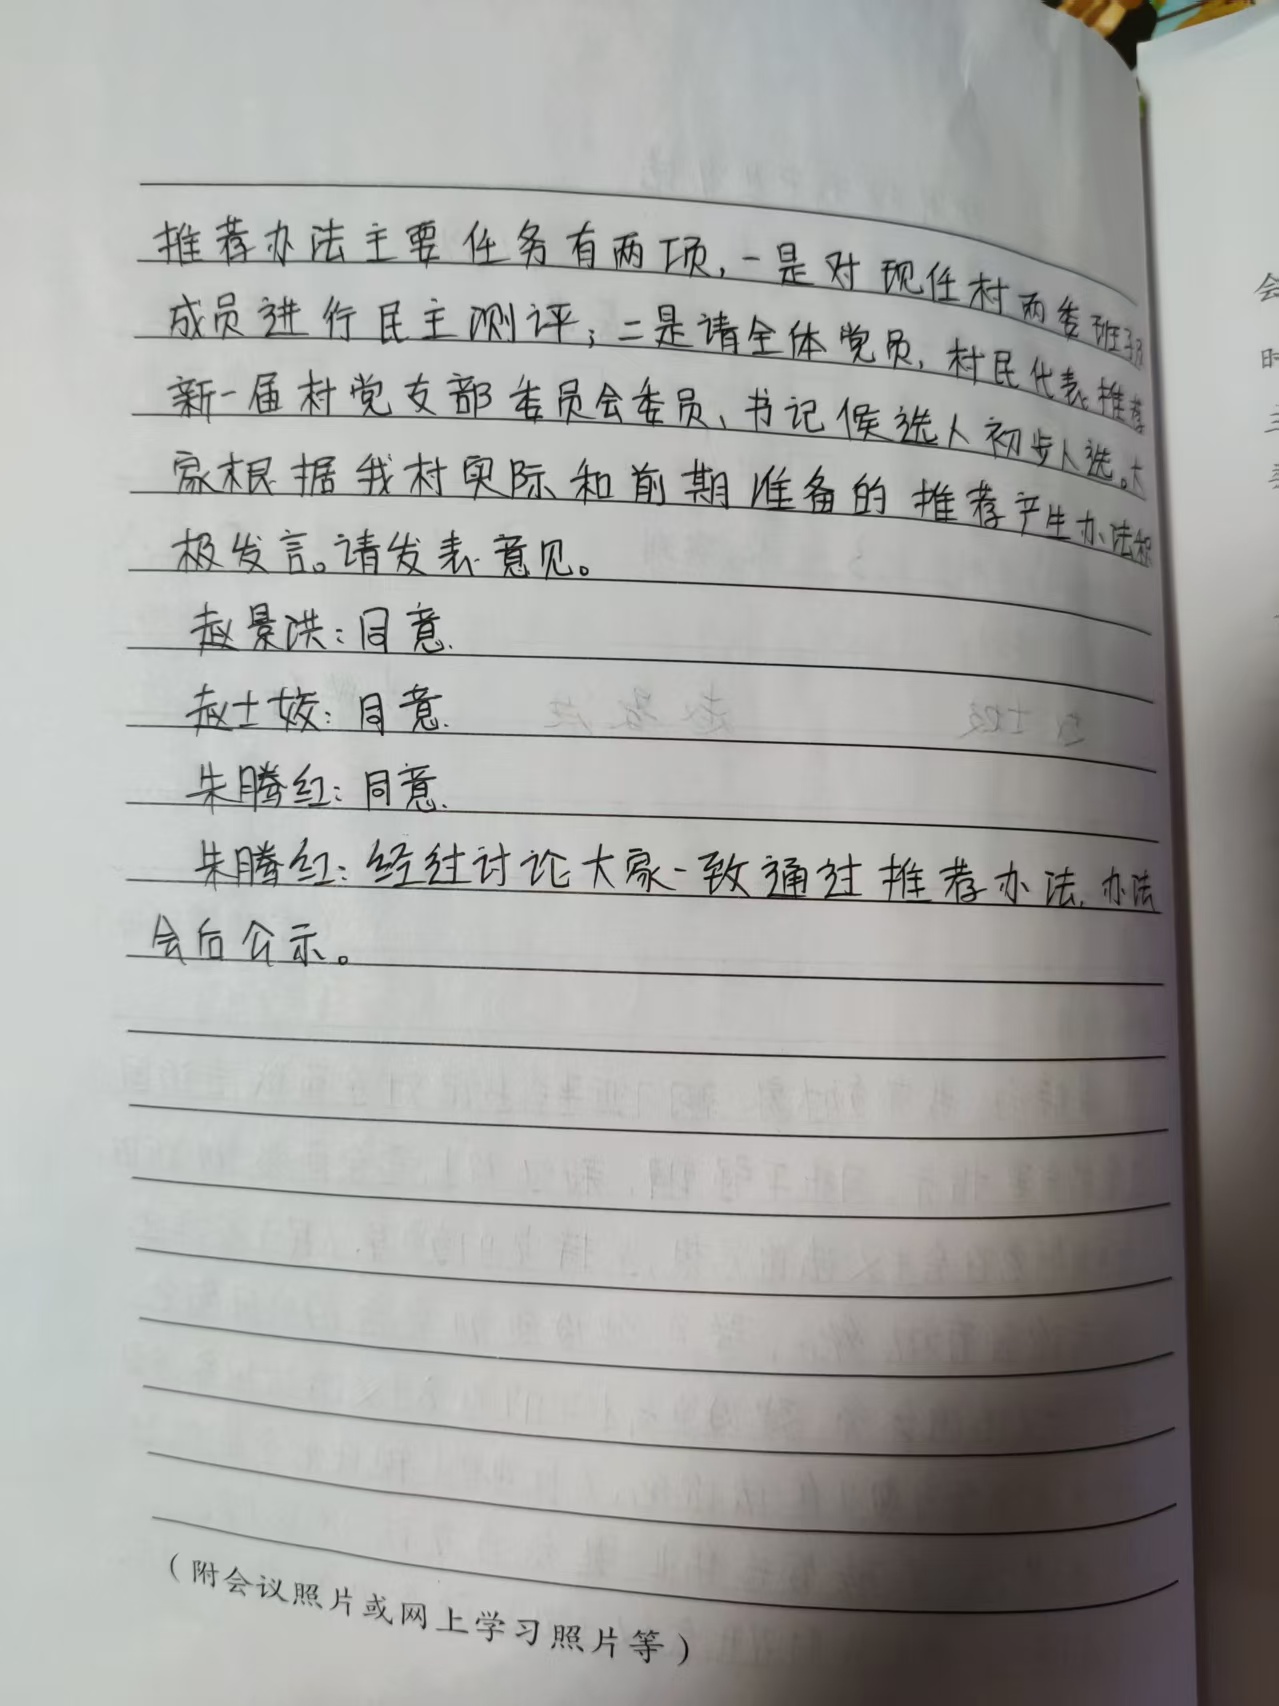 推荐办法主要任务有两项，一是对现任村两委班子
成员进行民主测评；二是请全体党员、村民代表推荐
新一届村党支部委员会委员、书记候选人初步人选。大
家根据我村实际和前期准备的推荐产生办法积
极发言。请发表意见。
赵景洪：同意.
赵士姣：同意.
朱腾红：同意.
朱腾红：经过讨论大家一致通过推荐办法，办法
会后公示。
（附会议照片或网上学习照片等）
会
时